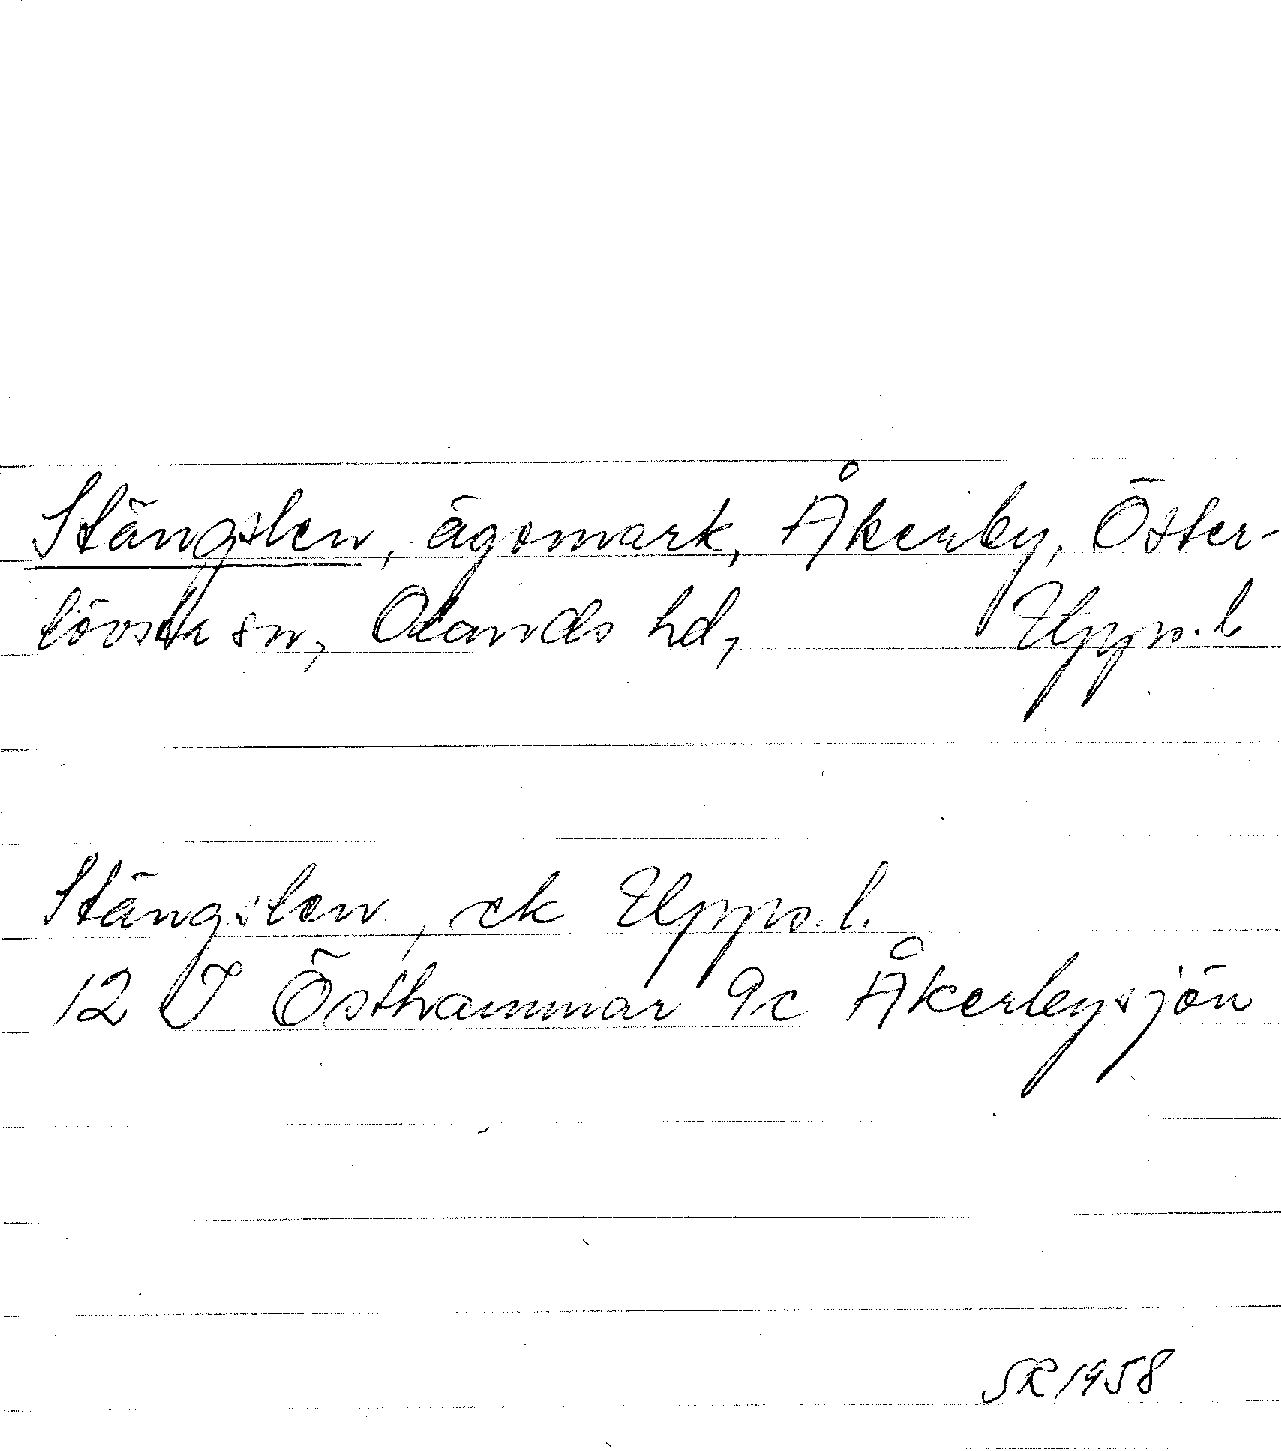 Stängslen, ägomark, Åkerby, Öster-
lövsta sn, Olands hd, Upps.l
Stängslen, ek Upps.l.
12 I Östhammar 9c Åkerbysjön
SR 1958